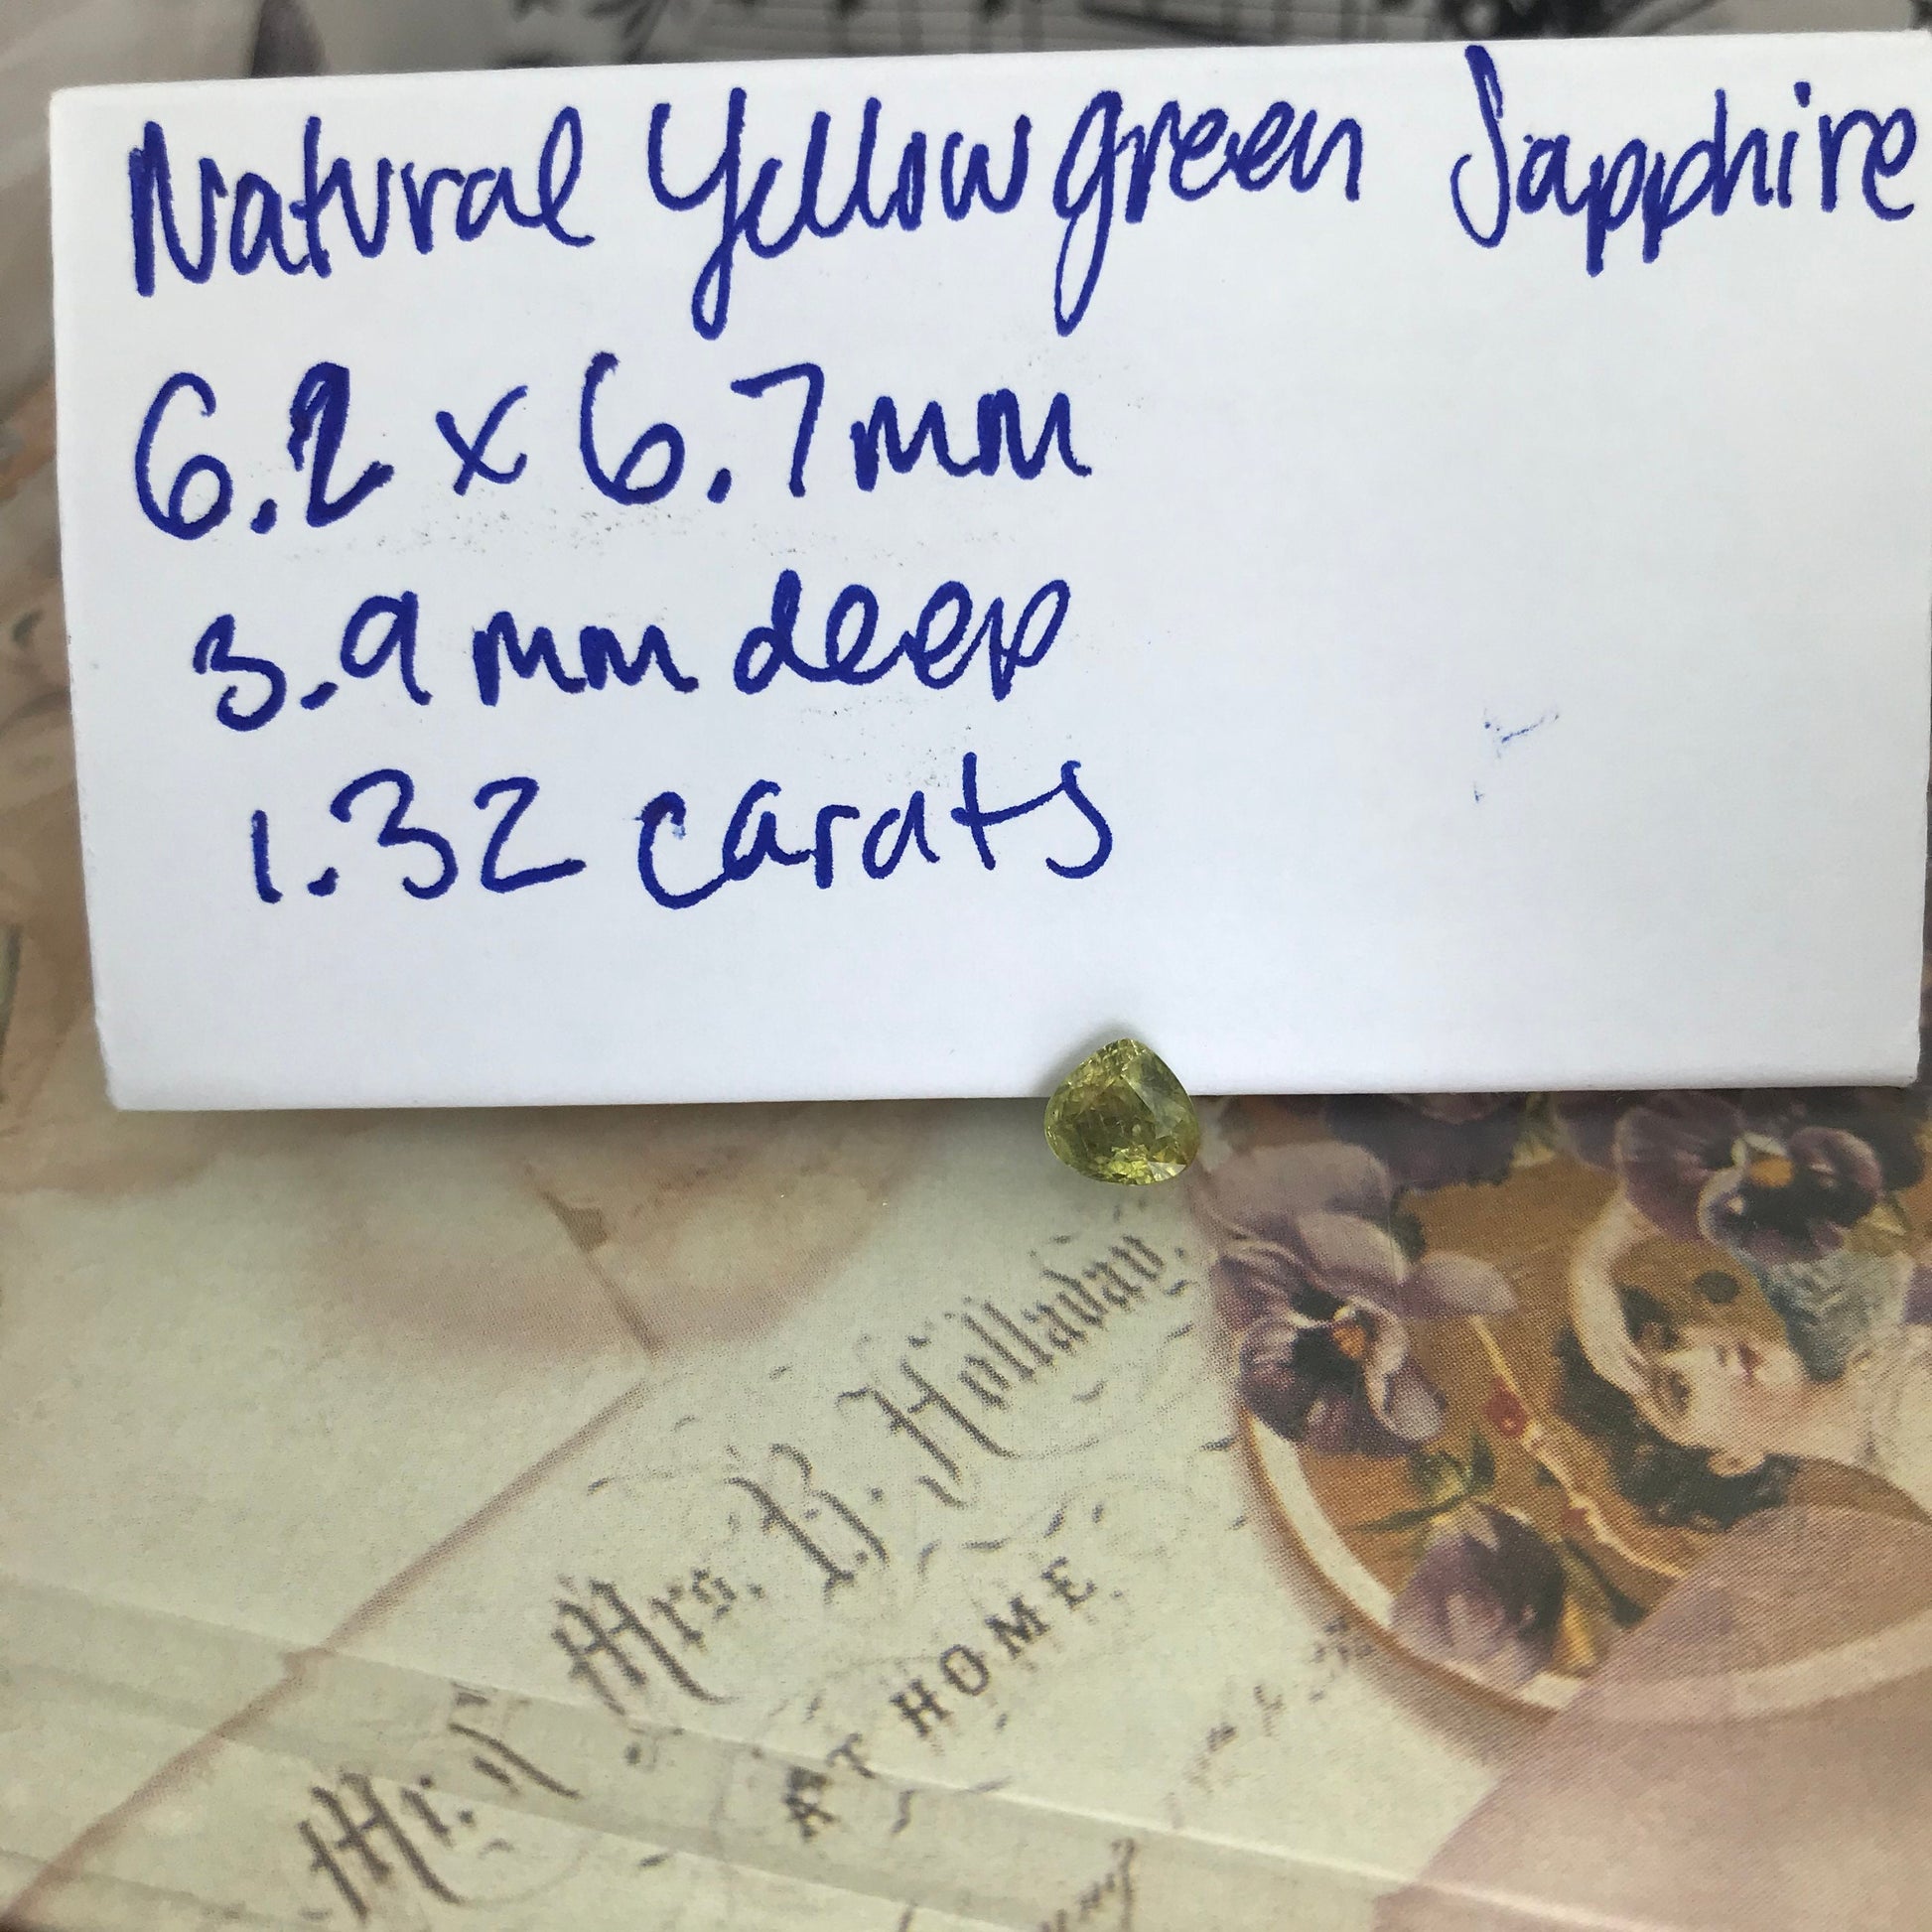 Natural Yellow green Sapphire
6.2 x 6.7mm
3.9 mm deep
1.32 carats
Mrs. B. Holladay.
AT HOME
Mr.